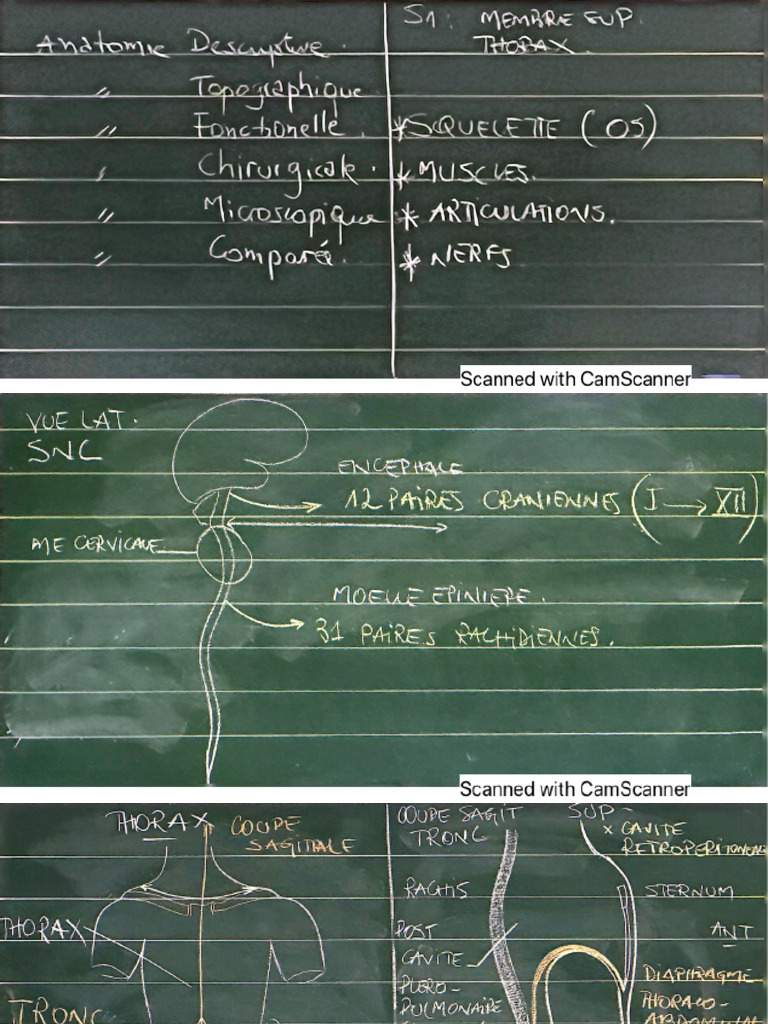 Anatomie Descriptive.
" Topographique
" Fonctionelle.
" Chirurgicale.
" Microscopique
" Comparé.
S1: MEMBRE SUP.
THORAX.
* SQUELETTE (OS)
* MUSCLES.
* ARTICULATIONS.
* NERFS
Scanned with CamScanner
VUE LAT.
SNC
ENCEPHALE
12 PAIRES CRANIENNES (I → XII)
ME CERVICALE
MOELLE EPINIERE.
31 PAIRES RACHIDIENNES.
Scanned with CamScanner
THORAX
COUPE
SAGITTALE
THORAX
TRONC
COUPE SAGIT
TRONC
SUP
x CAVITE
RETROPERITONEALE
RACHIS
STERNUM
POST
ANT
CAVITE
PLEURO-
PULMONAIRE
DIAPHRAGME
THORACO-
ABDOMINAL